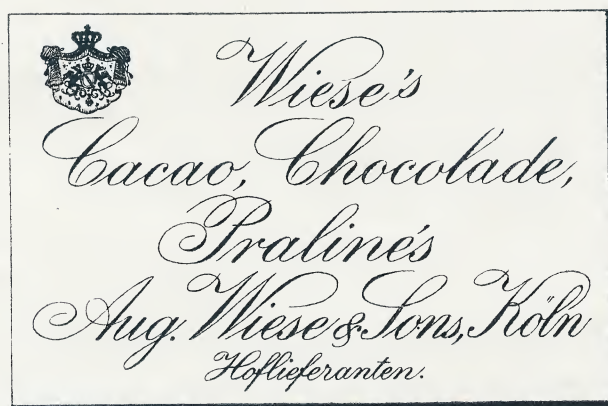 Wiese's
Cacao, Chocolade,
Pralinés
Aug. Wiese & Sons, Köln
Hoflieferanten.